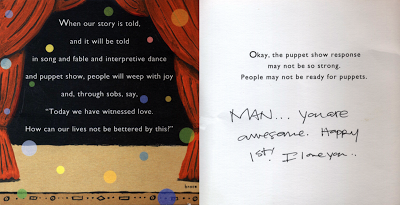 When our story is told,
and it will be told
in song and fable and interpretive dance
and puppet show, people will weep with joy
and, through sobs, say,
"Today we have witnessed love.
How can our lives not be bettered by this?"
Okay, the puppet show response
may not be so strong.
People may not be ready for puppets.
MAN... you are
awesome. Happy
1st! I love you..